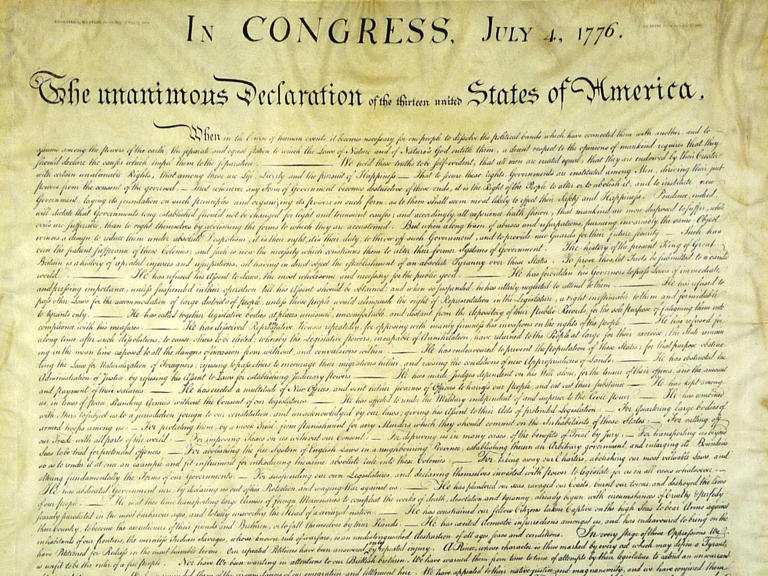 IN CONGRESS, JULY 4, 1776.
The unanimous Declaration of the thirteen united States of America,
When in the Course of human events, it becomes necessary for one people to dissolve the political bands which have connected them with another, and to
assume among the powers of the earth, the separate and equal station to which the Laws of Nature and of Nature's God entitle them, a decent respect to the opinions of mankind requires that they
should declare the causes which impel them to the separation. — We hold these truths to be self-evident, that all men are created equal, that they are endowed by their Creator
with certain unalienable Rights, that among these are Life, Liberty and the pursuit of Happiness. — That to secure these rights, Governments are instituted among Men, deriving their just
powers from the consent of the governed, — That whenever any Form of Government becomes destructive of these ends, it is the Right of the People to alter or to abolish it, and to institute new
Government, laying its foundation on such principles and organizing its powers in such form, as to them shall seem most likely to effect their Safety and Happiness. Prudence, indeed,
will dictate that Governments long established should not be changed for light and transient causes; and accordingly all experience hath shewn, that mankind are more disposed to suffer, while
evils are sufferable, than to right themselves by abolishing the forms to which they are accustomed. But when a long train of abuses and usurpations, pursuing invariably the same Object
evinces a design to reduce them under absolute Despotism, it is their right, it is their duty, to throw off such Government, and to provide new Guards for their future security. — Such has
been the patient sufferance of these Colonies; and such is now the necessity which constrains them to alter their former Systems of Government. The history of the present King of Great
Britain is a history of repeated injuries and usurpations, all having in direct object the establishment of an absolute Tyranny over these States. To prove this, let Facts be submitted to a candid
world. — He has refused his Assent to Laws, the most wholesome and necessary for the public good. — He has forbidden his Governors to pass Laws of immediate
and pressing importance, unless suspended in their operation till his Assent should be obtained; and when so suspended, he has utterly neglected to attend to them. — He has refused to
pass other Laws for the accommodation of large districts of people, unless those people would relinquish the right of Representation in the Legislature, a right inestimable to them and formidable
to tyrants only. — He has called together legislative bodies at places unusual, uncomfortable, and distant from the depository of their public Records, for the sole purpose of fatiguing them into
compliance with his measures. — He has dissolved Representative Houses repeatedly, for opposing with manly firmness his invasions on the rights of the people. — He has refused for
a long time, after such dissolutions, to cause others to be elected; whereby the Legislative powers, incapable of Annihilation, have returned to the People at large for their exercise; the State remain-
ing in the mean time exposed to all the dangers of invasion from without, and convulsions within. — He has endeavoured to prevent the population of these States; for that purpose obstruc-
ting the Laws for Naturalization of Foreigners; refusing to pass others to encourage their migrations hither, and raising the conditions of new Appropriations of Lands. — He has obstructed the
Administration of Justice, by refusing his Assent to Laws for establishing Judiciary powers. — He has made Judges dependent on his Will alone, for the tenure of their offices, and the amount
and payment of their salaries. — He has erected a multitude of New Offices, and sent hither swarms of Officers to harrass our people, and eat out their substance. — He has kept among
us, in times of peace, Standing Armies without the Consent of our legislatures. — He has affected to render the Military independent of and superior to the Civil power. — He has combined
with others to subject us to a jurisdiction foreign to our constitution, and unacknowledged by our laws; giving his Assent to their Acts of pretended Legislation: — For Quartering large bodies of
armed troops among us: — For protecting them, by a mock Trial, from punishment for any Murders which they should commit on the Inhabitants of these States: — For cutting off
our Trade with all parts of the world: — For imposing Taxes on us without our Consent: — For depriving us in many cases, of the benefits of Trial by Jury: — For transporting us beyond
Seas to be tried for pretended offences: — For abolishing the free System of English Laws in a neighbouring Province, establishing therein an Arbitrary government, and enlarging its Boundaries
so as to render it at once an example and fit instrument for introducing the same absolute rule into these Colonies: — For taking away our Charters, abolishing our most valuable Laws, and
altering fundamentally the Forms of our Governments: — For suspending our own Legislatures, and declaring themselves invested with power to legislate for us in all cases whatsoever. —
He has abdicated Government here, by declaring us out of his Protection and waging War against us. — He has plundered our seas, ravaged our Coasts, burnt our towns, and destroyed the lives
of our people. — He is at this time transporting large Armies of foreign Mercenaries to compleat the works of death, desolation and tyranny, already begun with circumstances of Cruelty & perfidy
scarcely paralleled in the most barbarous ages, and totally unworthy the Head of a civilized nation. — He has constrained our fellow Citizens taken Captive on the high Seas to bear Arms against
their Country, to become the executioners of their friends and Brethren, or to fall themselves by their Hands. — He has excited domestic insurrections amongst us, and has endeavoured to bring on the
inhabitants of our frontiers, the merciless Indian Savages, whose known rule of warfare, is an undistinguished destruction of all ages, sexes and conditions. In every stage of these Oppressions We
have Petitioned for Redress in the most humble terms: Our repeated Petitions have been answered by repeated injury. A Prince, whose character is thus marked by every act which may define a Tyrant,
is unfit to be the ruler of a free people. Nor have We been wanting in attentions to our Brittish brethren. We have warned them from time to time of attempts by their legislature to extend an unwarrant
them of the circumstances of our emigration and settlement here. We have appealed to their native justice and magnanimity, and we have conjured them